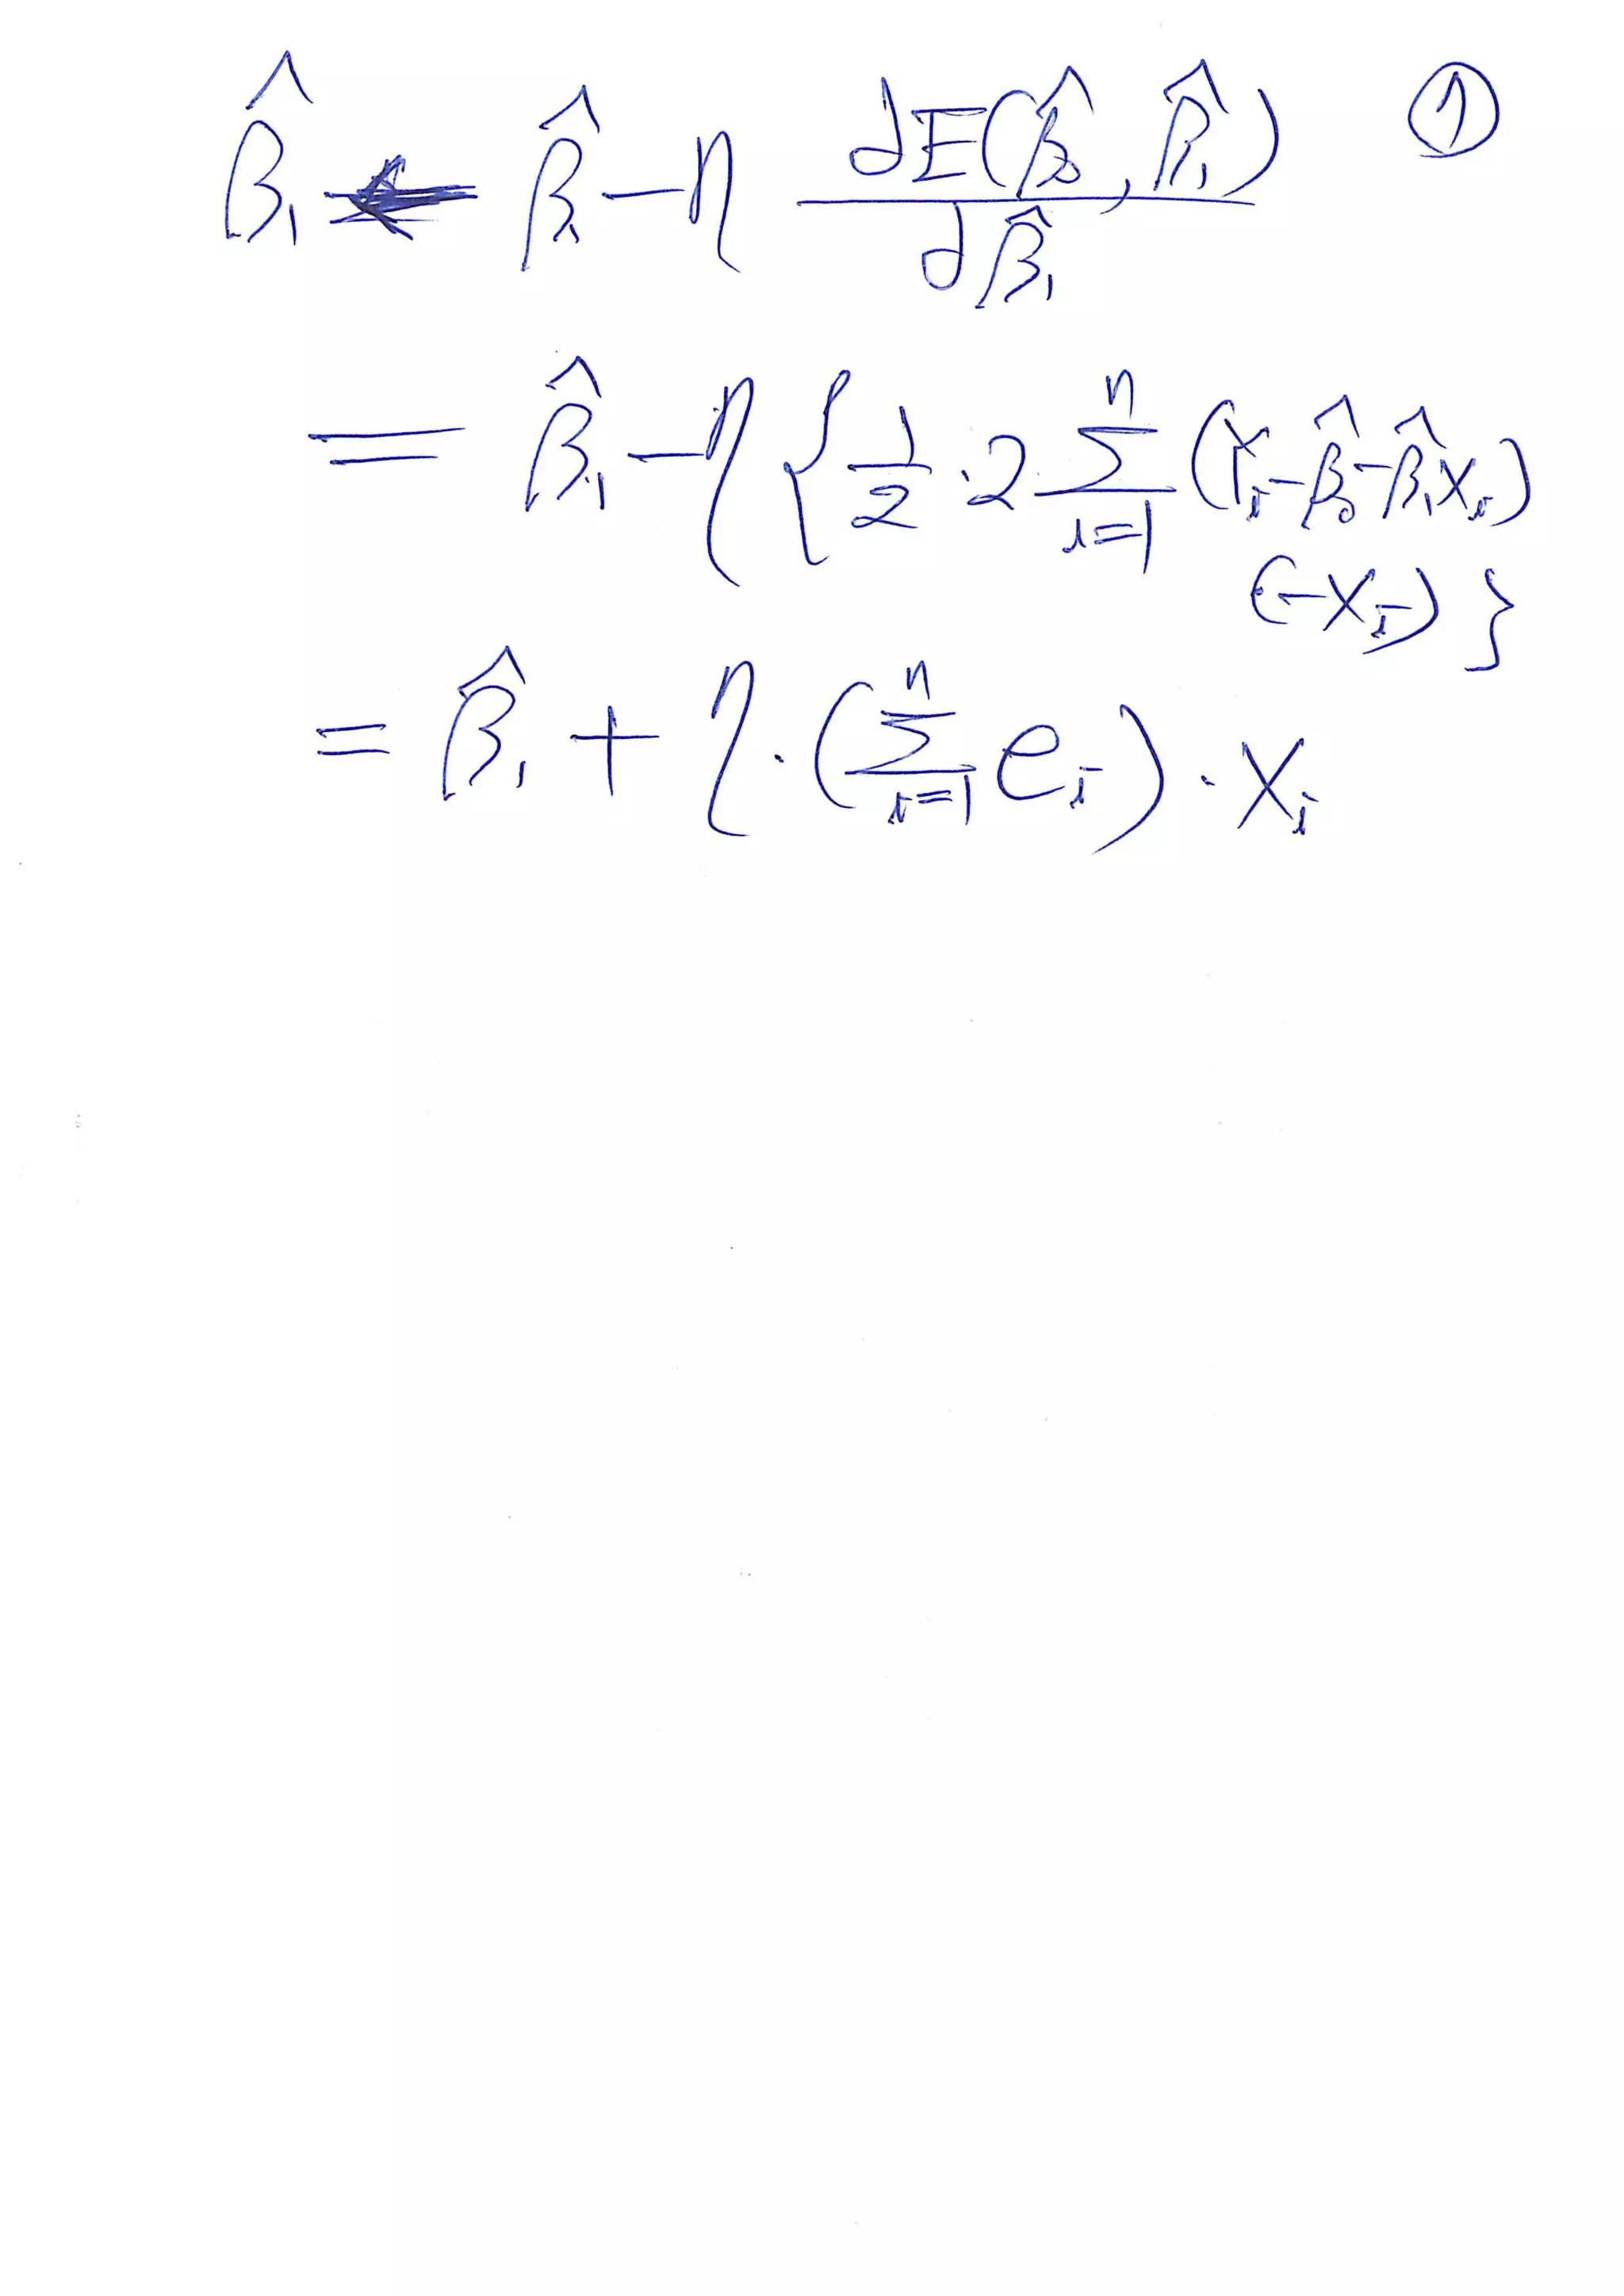 β̂₁ ← β̂₁ − η ∂E(β̂₀, β̂₁) / ∂β̂₁ ①
= β̂₁ − η { 1/2 · 2 Σⁿᵢ₌₁ (Yᵢ − β̂₀ − β̂₁Xᵢ)
(−Xᵢ) }
= β̂₁ + η · (Σⁿᵢ₌₁ eᵢ) · Xᵢ